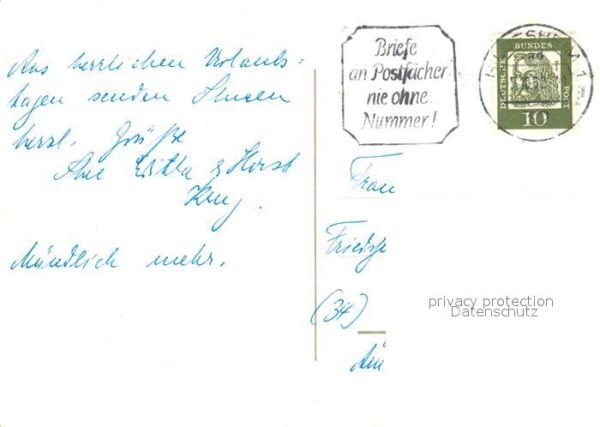 Aus herrlichen Urlaubs-
tagen senden Ihnen
herzl. Grüße
Ihre & Horst
Mündlich mehr.
Briefe
an Postfächer
nie ohne
Nummer!
DEUTSCHE BUNDES POST
10
Frau
(34)
privacy protection
Datenschutz